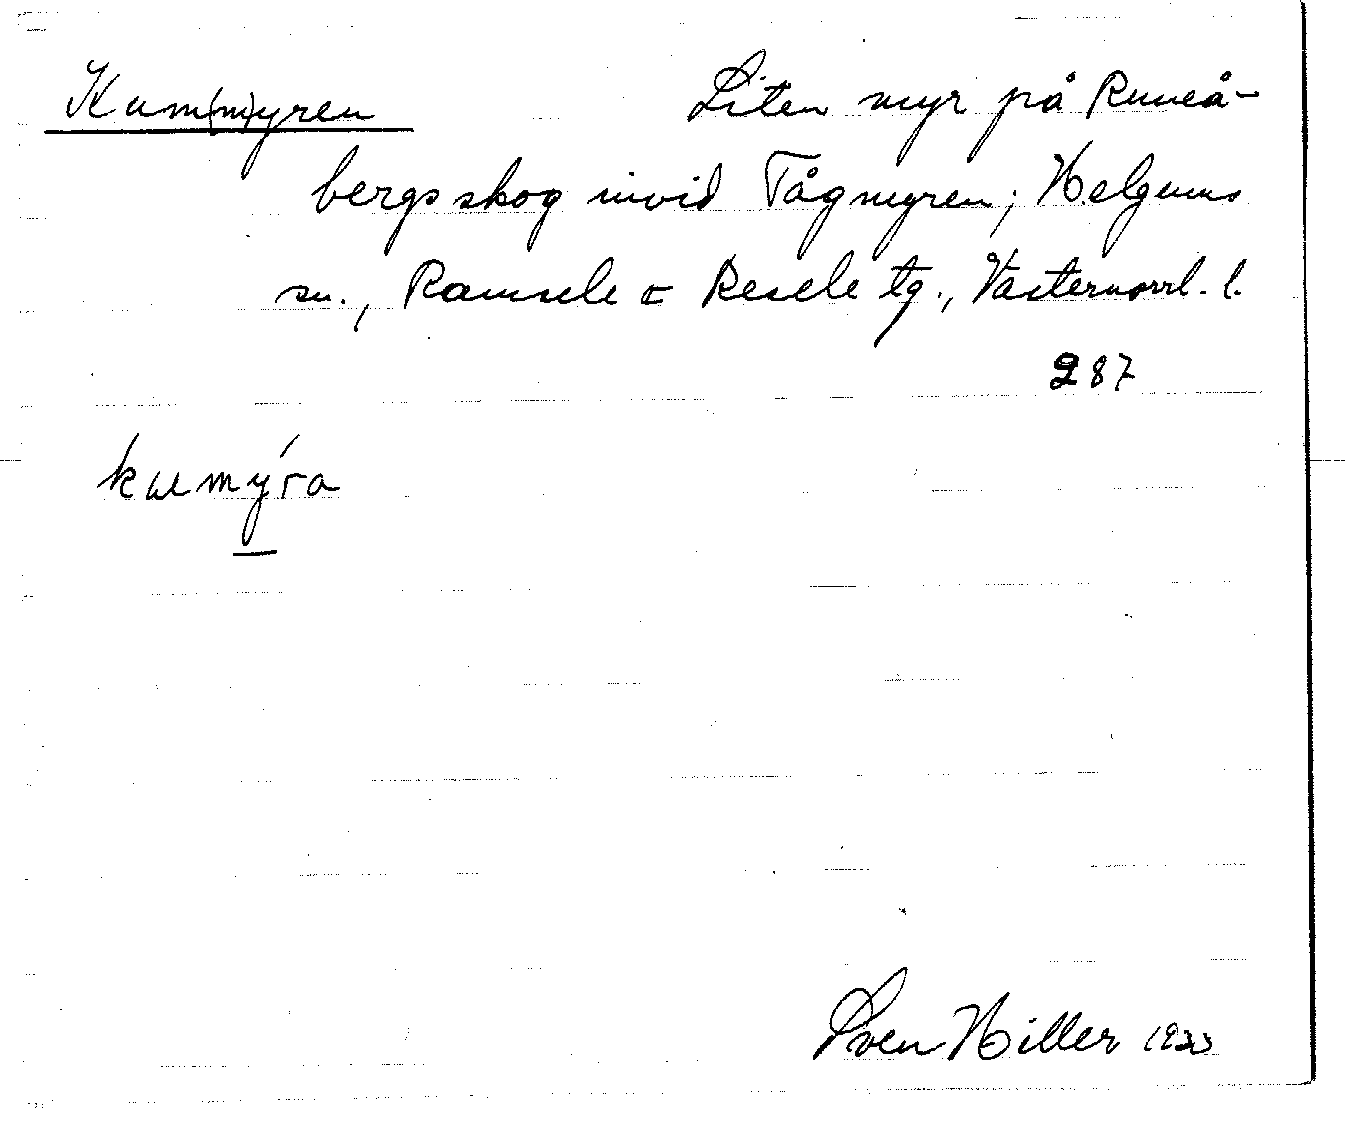 Kum(m)yren Liten myr på Runeå-
bergs skog invid Tågmyren; Helgums
sn., Ramsele o Resele tg., Västernorrl. l.
287
kumýra
Sven Hiller 1933